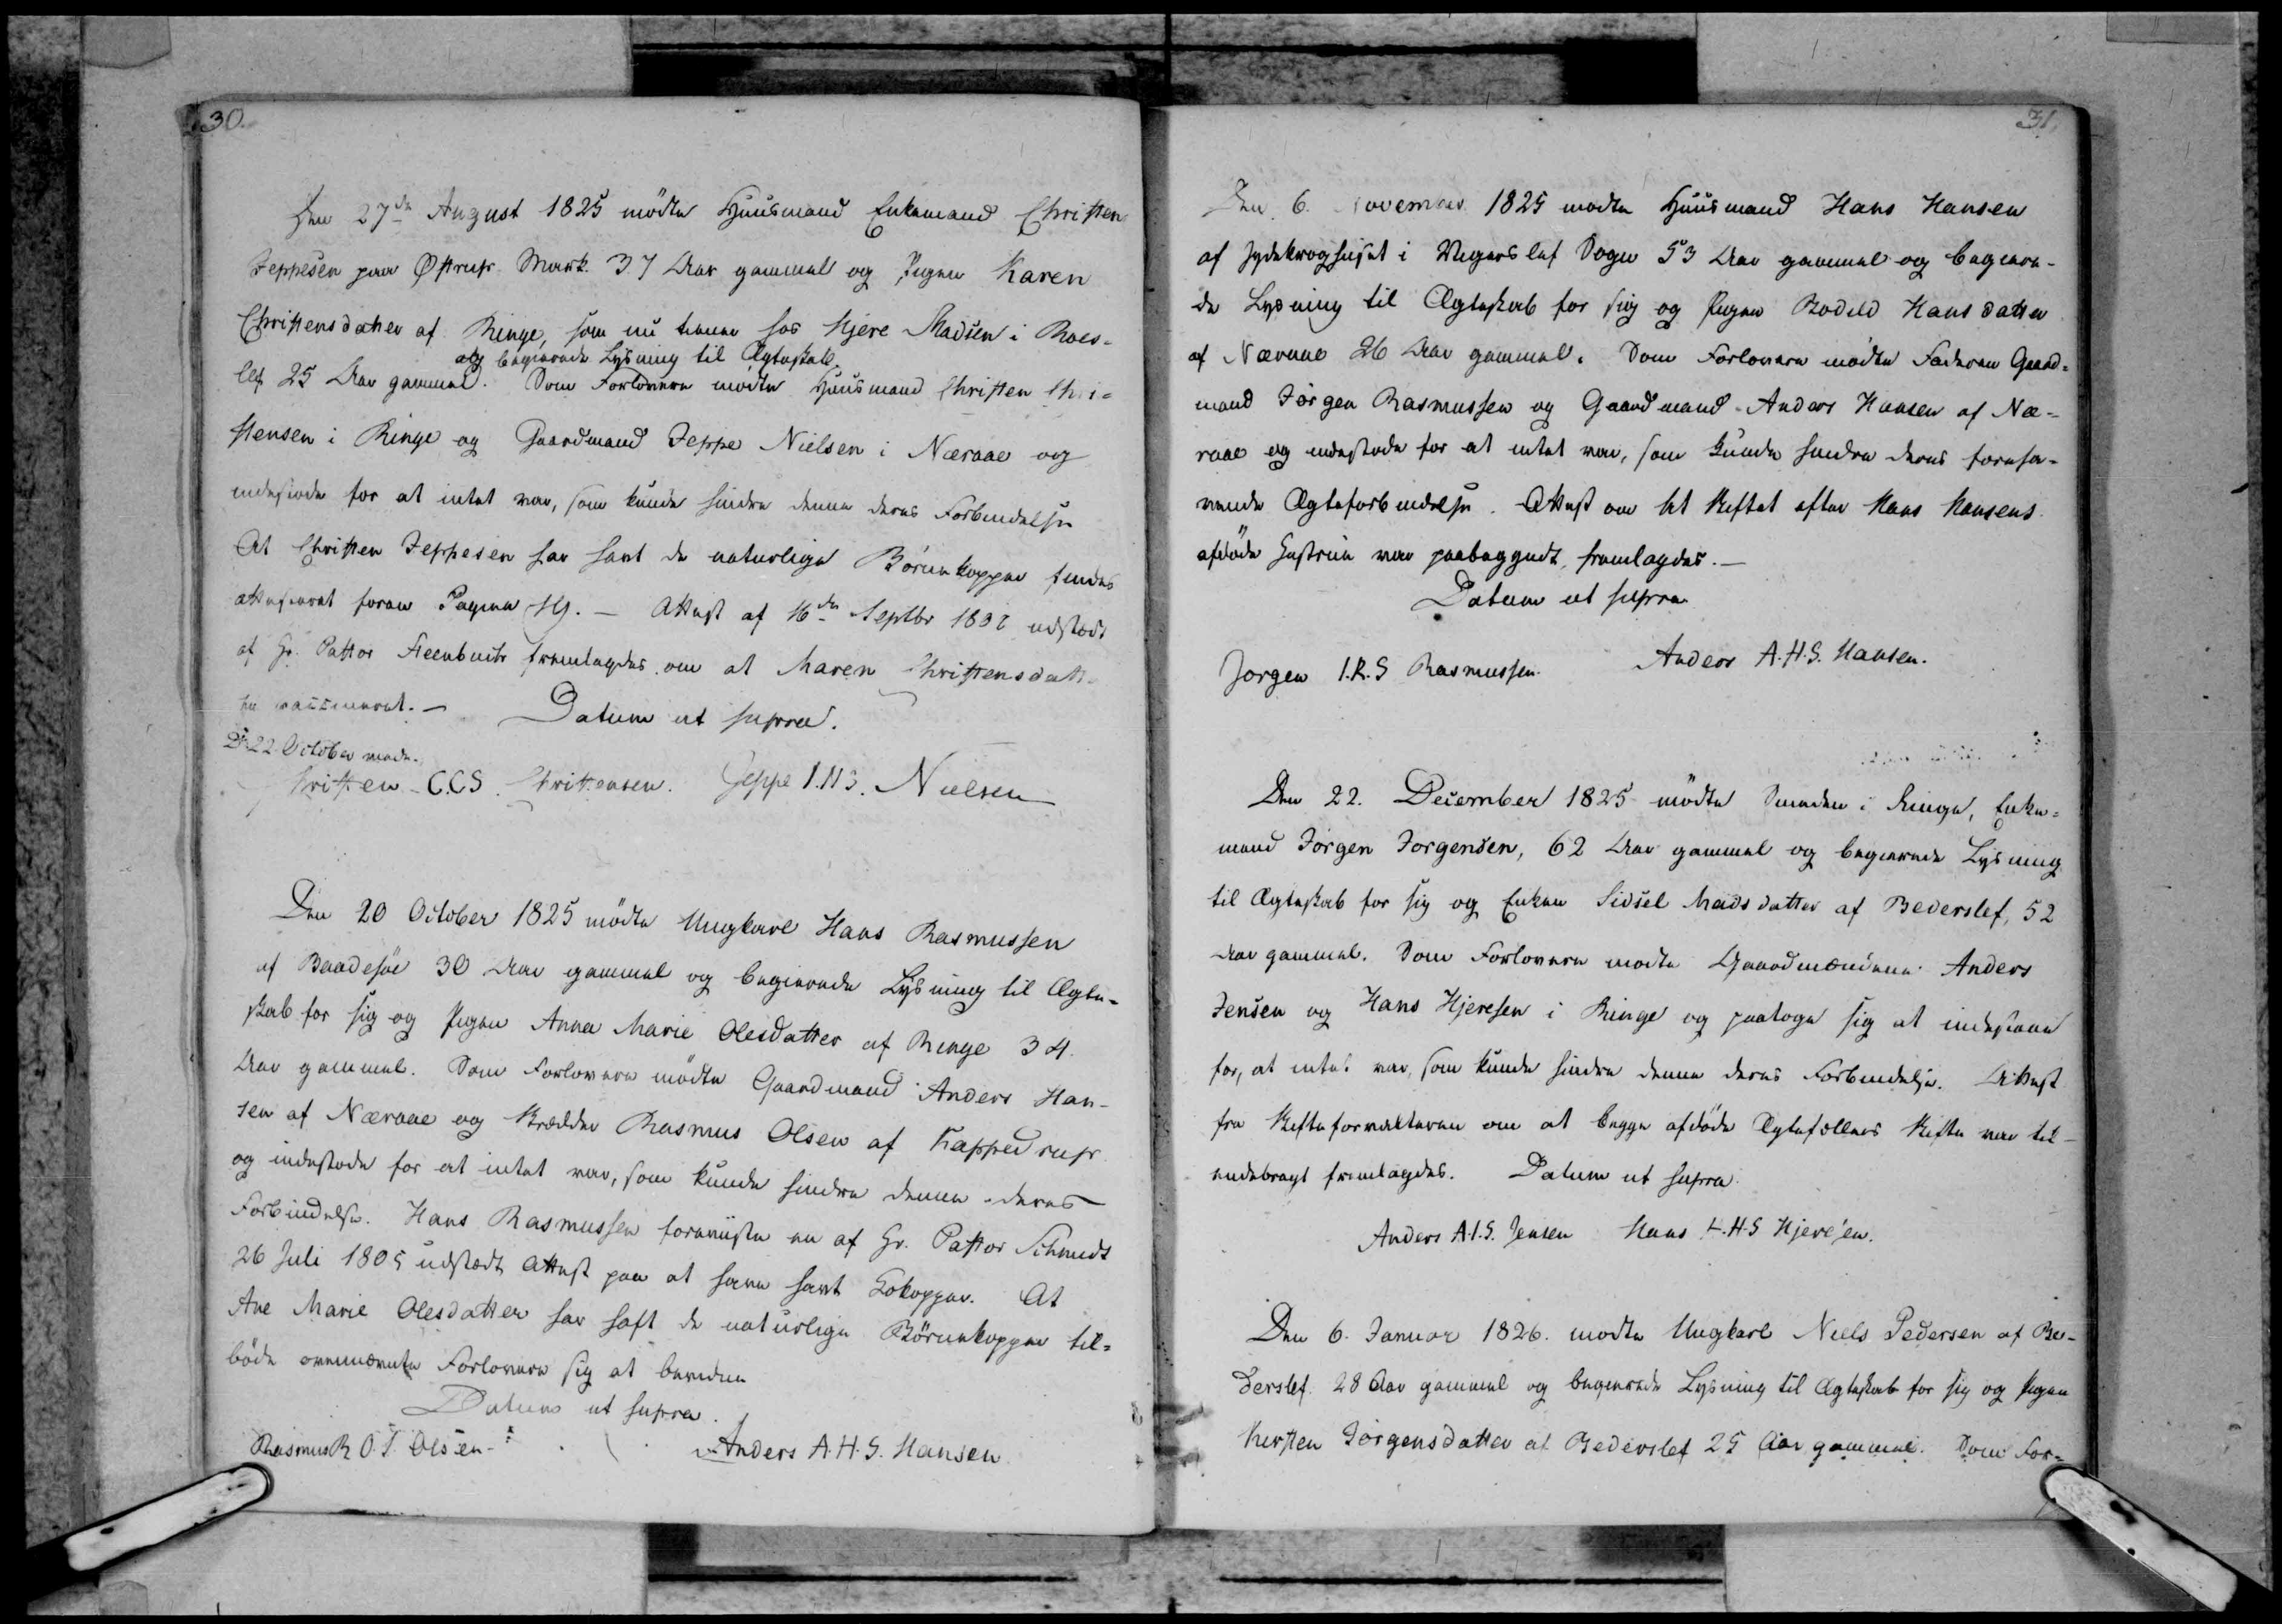 30.
Den 27de August 1825 mödte Huusmand Enkemand Christen
Jeppesen paa Østrup Mark 37 Aar gammel og Pigen Karen
Christensdatter af Ringe, som nu tiener hos Hjere Madsen i Roers-
og begierede Lysning til Ægteskab.
lef 25 Aar gammel. Som Forlovere mödte Huusmand Christen Chri-
stensen i Ringe og Gaardmand Jeppe Nielsen i Næraae og
indestode for at intet var, som kunde hindre denne deres Forbindelse
At Christen Jeppesen har havt de naturlige Börnekopper findes
attesteret foran Pagina 19. — Attest af 16de Septbr
af Hr. Pastor Steenbuch fremlagdes om at Maren Christensdatter
er vaccineret. — Datum ut supra.
D. 22 October
Christen C.C.S. Christensen. Jeppe I.N.S. Nielsen
Den 20 October 1825 mödte Ungkarl Hans Rasmussen
af Baadesöe 30 Aar gammel og begierede Lysning til Ægte-
skab for sig og Pigen Anna Marie Olesdatter af Ringe 34
Aar gammel. Som Forlovere mödte Gaardmand Anders Han-
sen af Næraae og Skrædder Rasmus Olsen af Kappedrup
og indestode for at intet var, som kunde hindre denne deres
Forbindelse. Hans Rasmussen foreviiste en af Hr. Pastor Schmidt
26 Juli 1805 udstædt Attest paa at have havt Kokopper. At
Ane Marie Olesdatter har haft de naturlige Börnekopper til-
böde ovennævnte Forlovere sig at bevidne
Datum ut supra.
Rasmus R O.S. Olsen Anders A.H.S. Hansen
31.
Den 6. November 1825 mödte Huusmand Hans Hansen
af Jydekroghuset i Vigerslef Sogn 53 Aar gammel og begiere-
de Lysning til Ægteskab for sig og Pigen Bodild Hansdatter
af Næraae 26 Aar gammel. Som Forlovere mödte Faderen Gaard-
mand Jörgen Rasmussen og Gaardmand Anders Hansen af Næ-
raae og indestode for at intet var, som kunde hindre deres foreha-
vende Ægteforbindelse. Attest om at Skiftet efter Hans Hansens
afdöde Hustrue var paabegyndt, fremlagdes. —
Datum ut supra
Jorgen I.R.S Rasmussen. Anders A.H.S. Hansen.
Den 22. December 1825 mödte Smeden i Ringe, Enke-
mand Jörgen Jorgensen, 62 Aar gammel og begierede Lysning
til Ægteskab for sig og Enken Sidsel Madsdatter af Bederslef, 52
Aar gammel. Som Forlovere mödte Gaardmændene Anders
Jensen og Hans Hjeresen i Ringe og paatoge sig at indestaae
for, at intet var, som kunde hindre denne deres Forbindelse. Attest
fra Skifteforvalteren om at begge afdöde Ægtefællers Skifte var til-
endebragt fremlagdes. Datum ut supra
Anders A.I.S. Jensen Hans H.H.S Hjere'en.
Den 6. Januar 1826. mödte Ungkarl Niels Pedersen af Be-
derslef 28 Aar gammel og begierede Lysning til Ægteskab for sig og Pigen
Kirsten Jörgensdatter af Bederslef 25 Aar gammel. Som For-